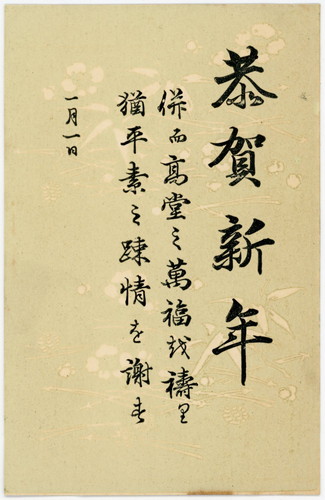 恭賀新年
併而高堂之萬福越禱里
猶平素之踈情を謝す
一月一日